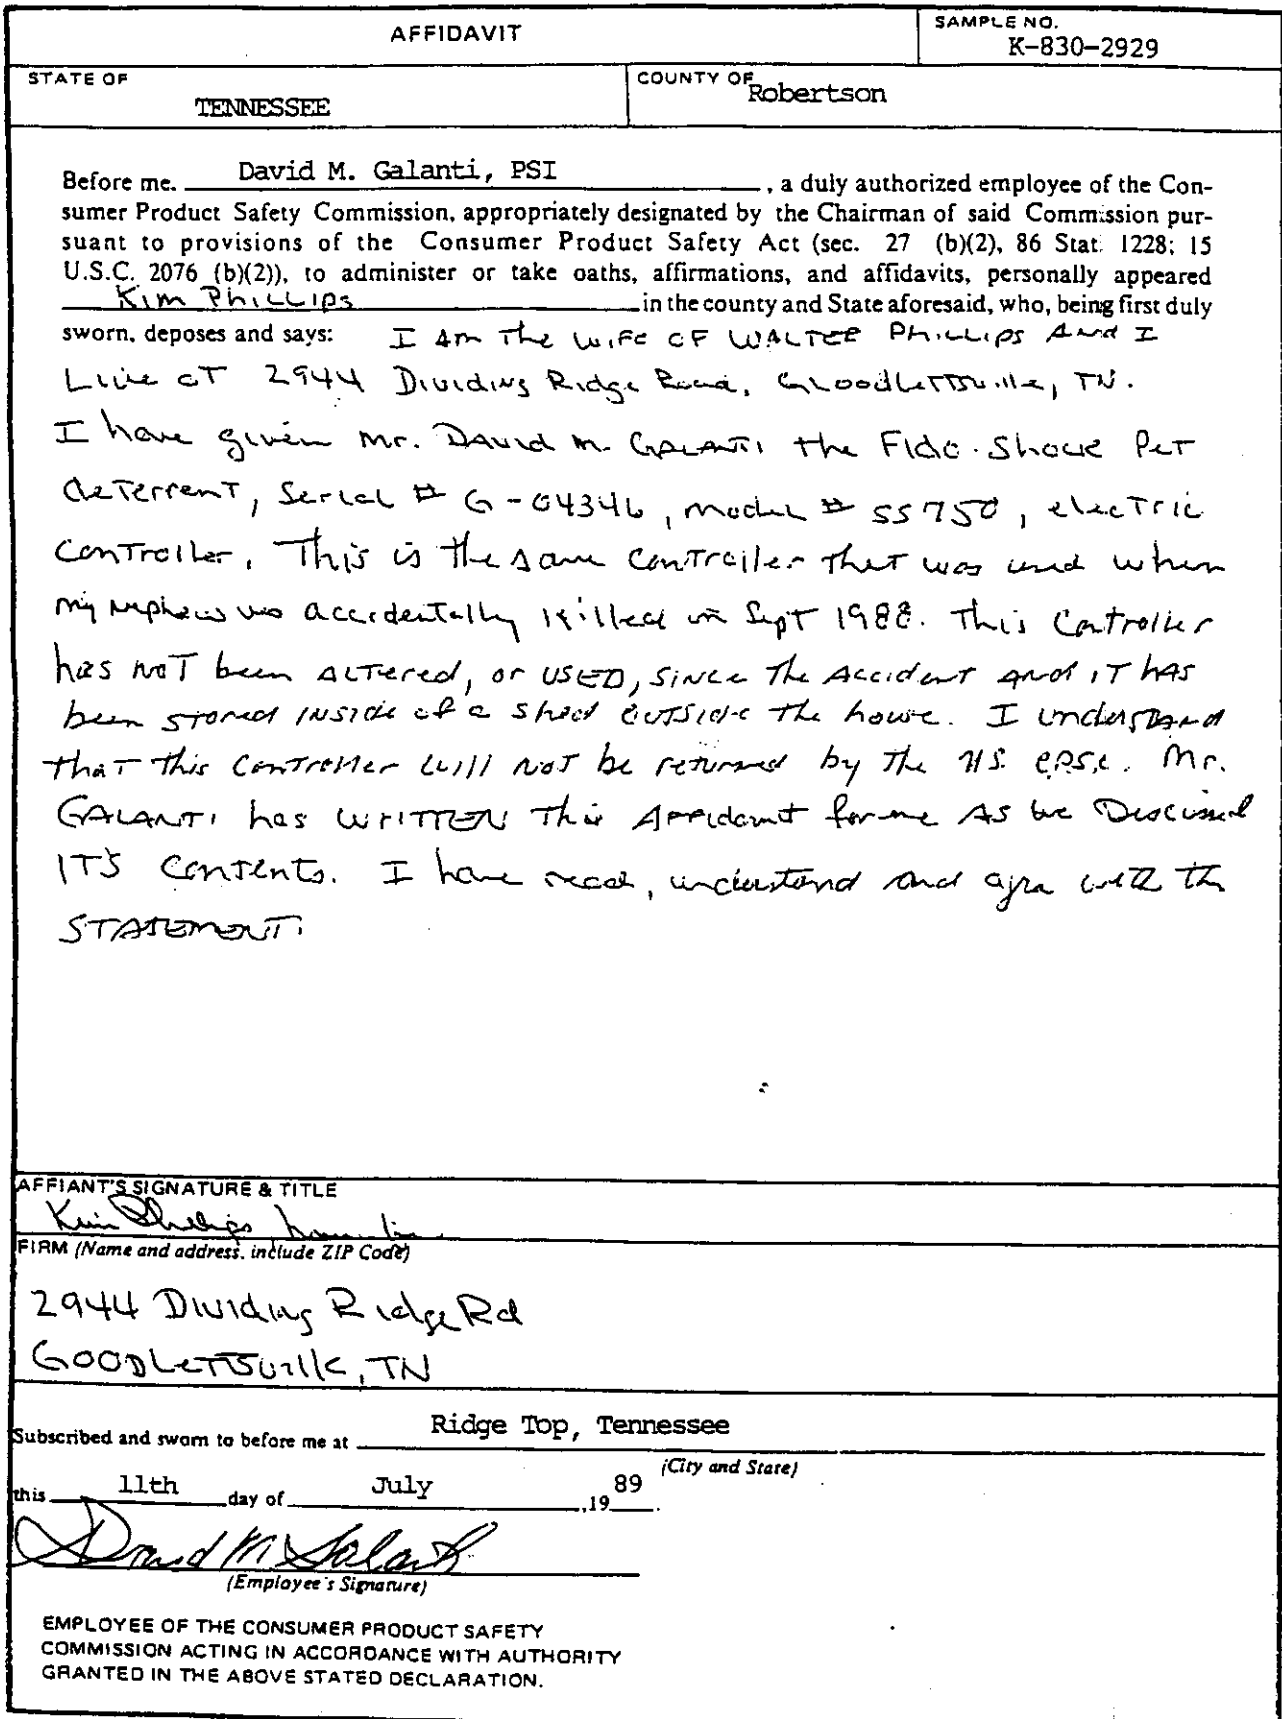 AFFIDAVIT
SAMPLE NO.
K-830-2929
STATE OF
TENNESSEE
COUNTY OF
Robertson
Before me, David M. Galanti, PSI, a duly authorized employee of the Con-
sumer Product Safety Commission, appropriately designated by the Chairman of said Commission pur-
suant to provisions of the Consumer Product Safety Act (sec. 27 (b)(2), 86 Stat. 1228; 15
U.S.C. 2076 (b)(2)), to administer or take oaths, affirmations, and affidavits, personally appeared
Kim Phillips in the county and State aforesaid, who, being first duly
sworn, deposes and says: I am the wife of WALTER Phillips and I
Live at 2944 Dividing Ridge Road, Goodlettsville, TN.
I have given Mr. David M. GALANTI the Fido-Shock Pet
deterrent, Serial # G-04346, model # SS750, electric
controller. This is the same controller that was used when
my nephew was accidentally killed in Sept 1988. This Controller
has not been altered, or used, since the accident and it has
been stored inside of a shed outside the house. I understand
that this controller will not be returned by the U.S. CPSC. Mr.
GALANTI has written this Affidavit for me as we Discussed
it's contents. I have read, understand and agree with the
STATEMENT.
AFFIANT'S SIGNATURE & TITLE
Kim Phillips
FIRM (Name and address, include ZIP Code)
2944 Dividing Ridge Rd
Goodlettsville, TN
Subscribed and sworn to before me at Ridge Top, Tennessee
(City and State)
this 11th day of July, 19 89.
David M Galanti
(Employee's Signature)
EMPLOYEE OF THE CONSUMER PRODUCT SAFETY
COMMISSION ACTING IN ACCORDANCE WITH AUTHORITY
GRANTED IN THE ABOVE STATED DECLARATION.